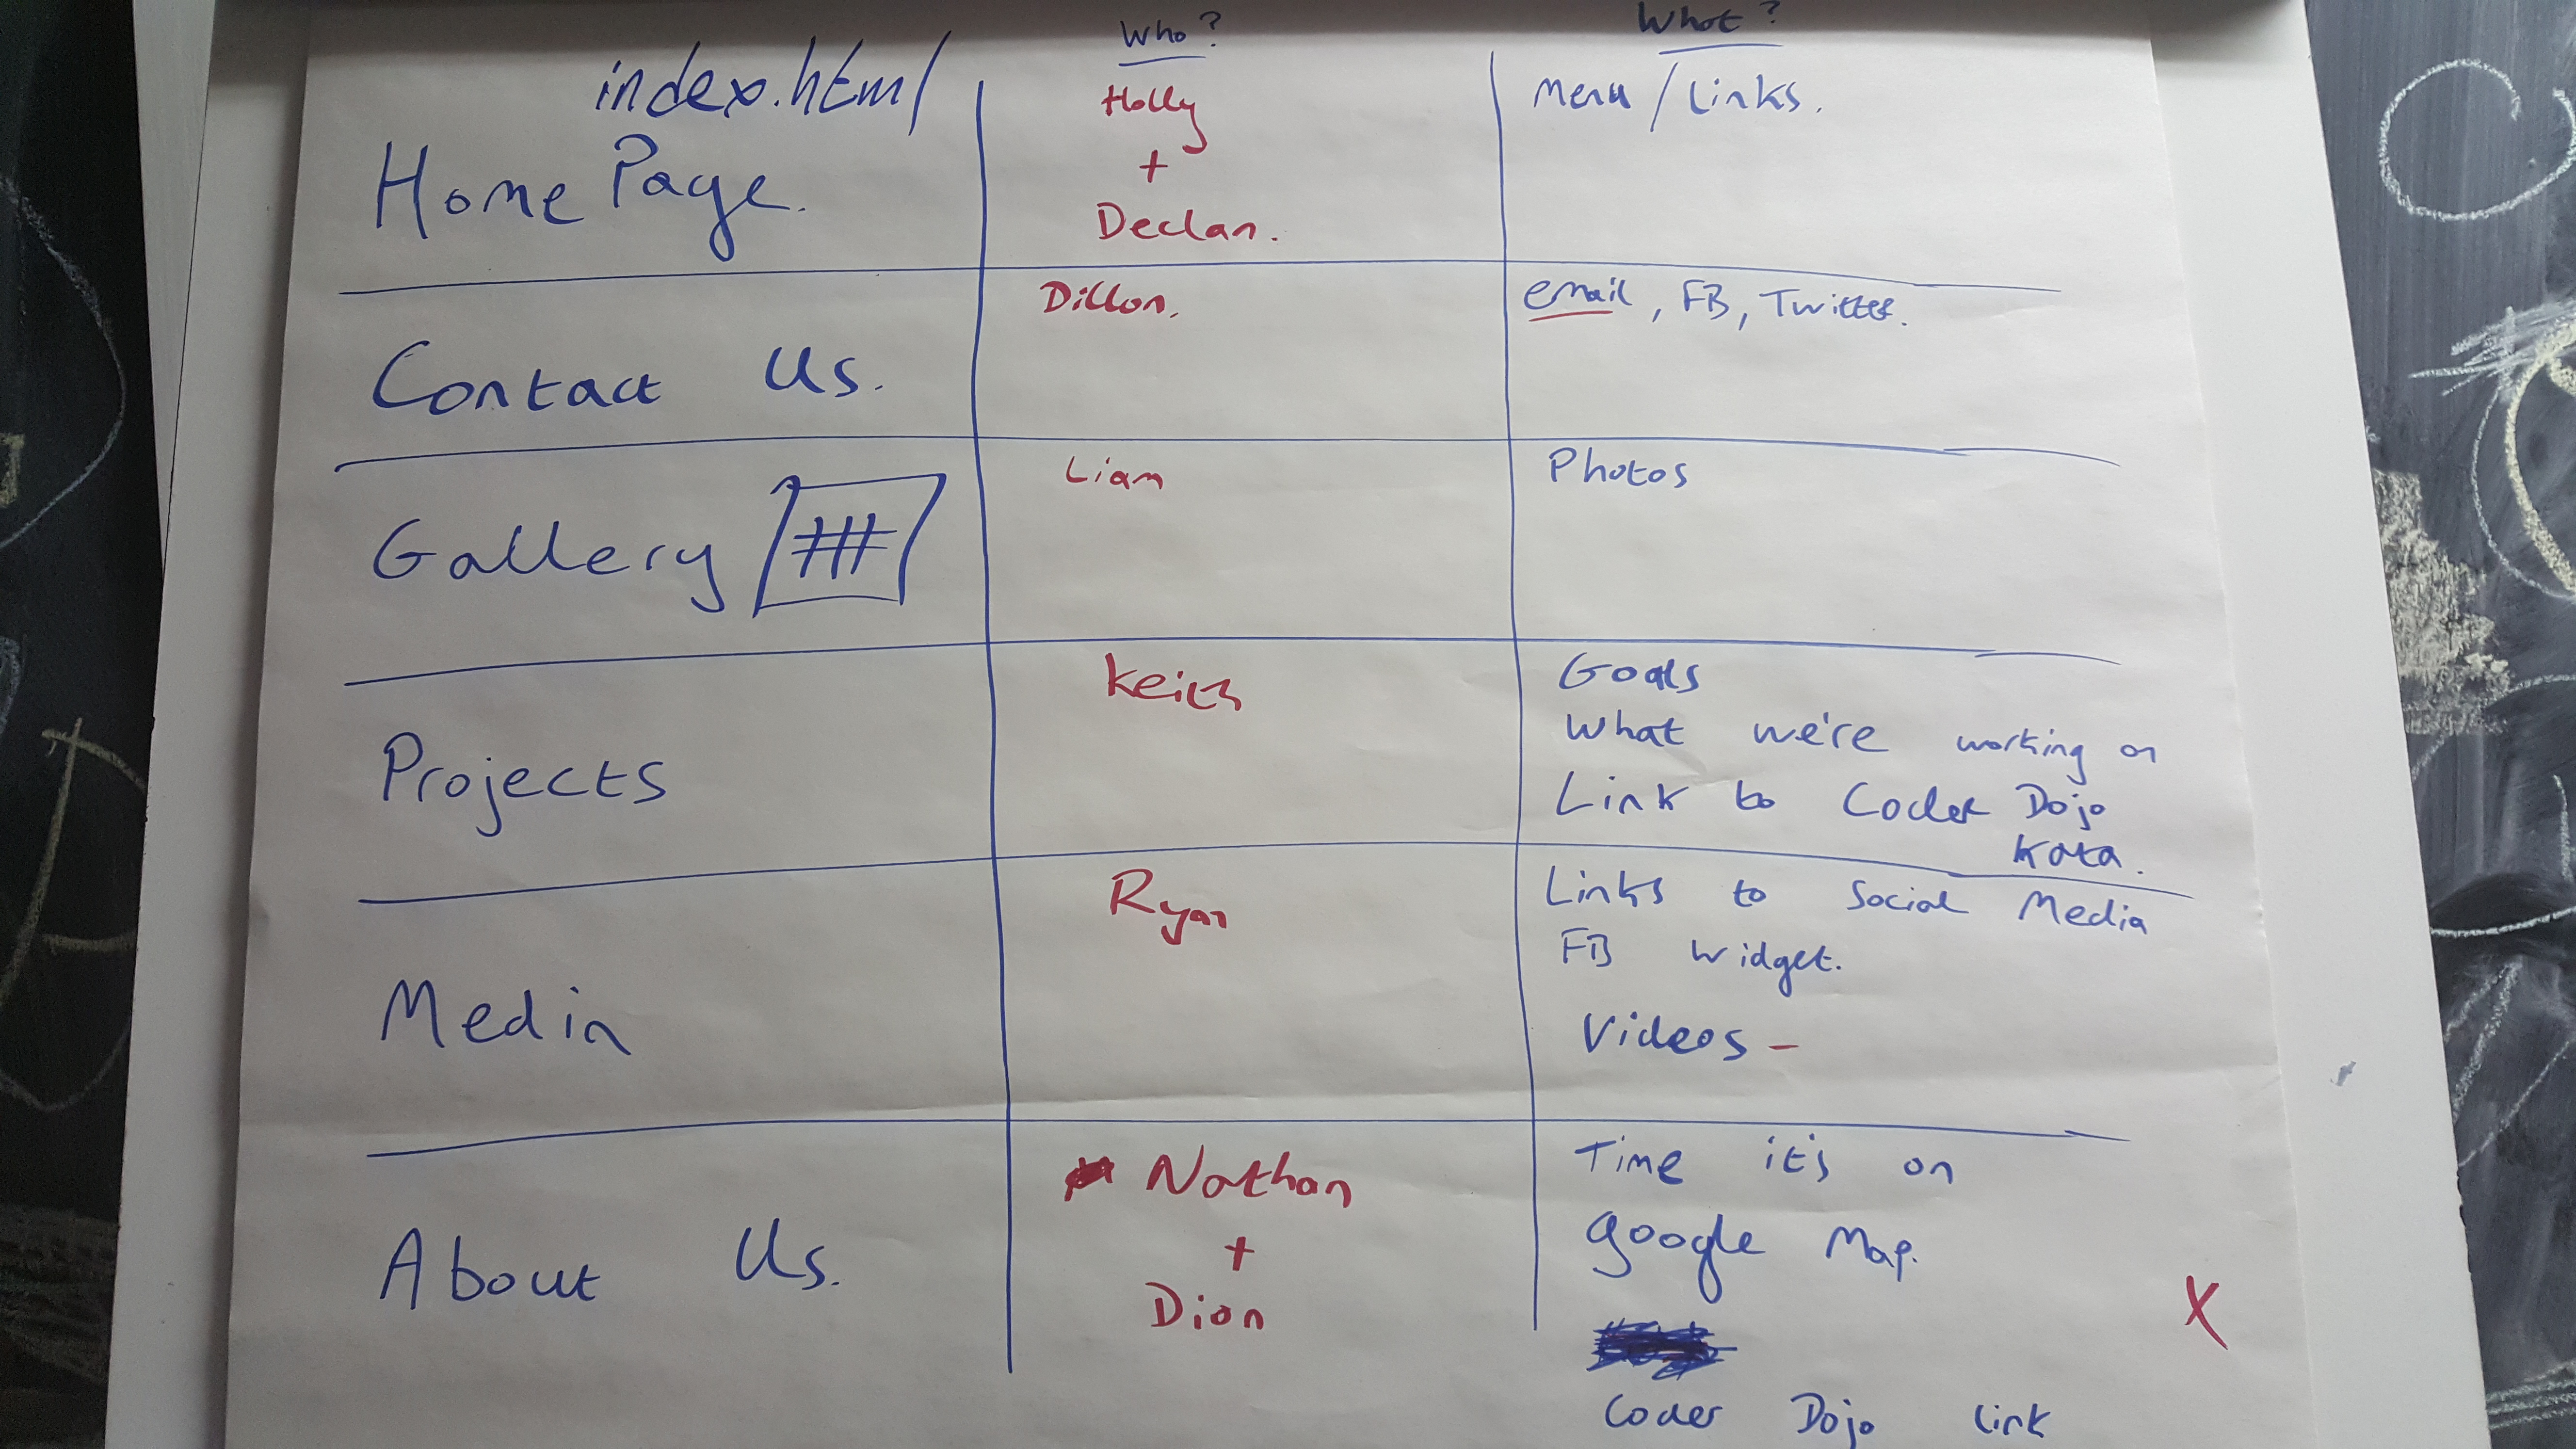 Who?
What?
index.html
Home Page.
Holly
+
Declan.
Menu / Links.
Contact Us.
Dillon.
email, FB, Twitter.
Gallery
Liam
Photos
Projects
Keith
Goals
What we're working on
Link to Coder Dojo
Kata.
Media
Ryan
Links to Social Media
FB Widget.
Videos -
About Us.
Nathan
+
Dion
Time it's on
google Map.
Coder Dojo link
X